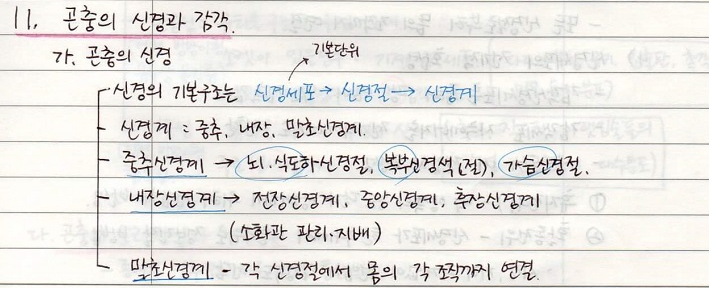 11. 곤충의 신경과 감각.
가. 곤충의 신경
기본단위
신경의 기본구조는 신경세포 → 신경절 → 신경계
신경계 : 중추, 내장, 말초신경계.
중추신경계 → 뇌·식도하신경절, 복부신경색(절), 가슴신경절.
내장신경계 → 전장신경계, 중앙신경계, 후장신경계
(소화관 관리·지배)
말초신경계 - 각 신경절에서 몸의 각 조직까지 연결.